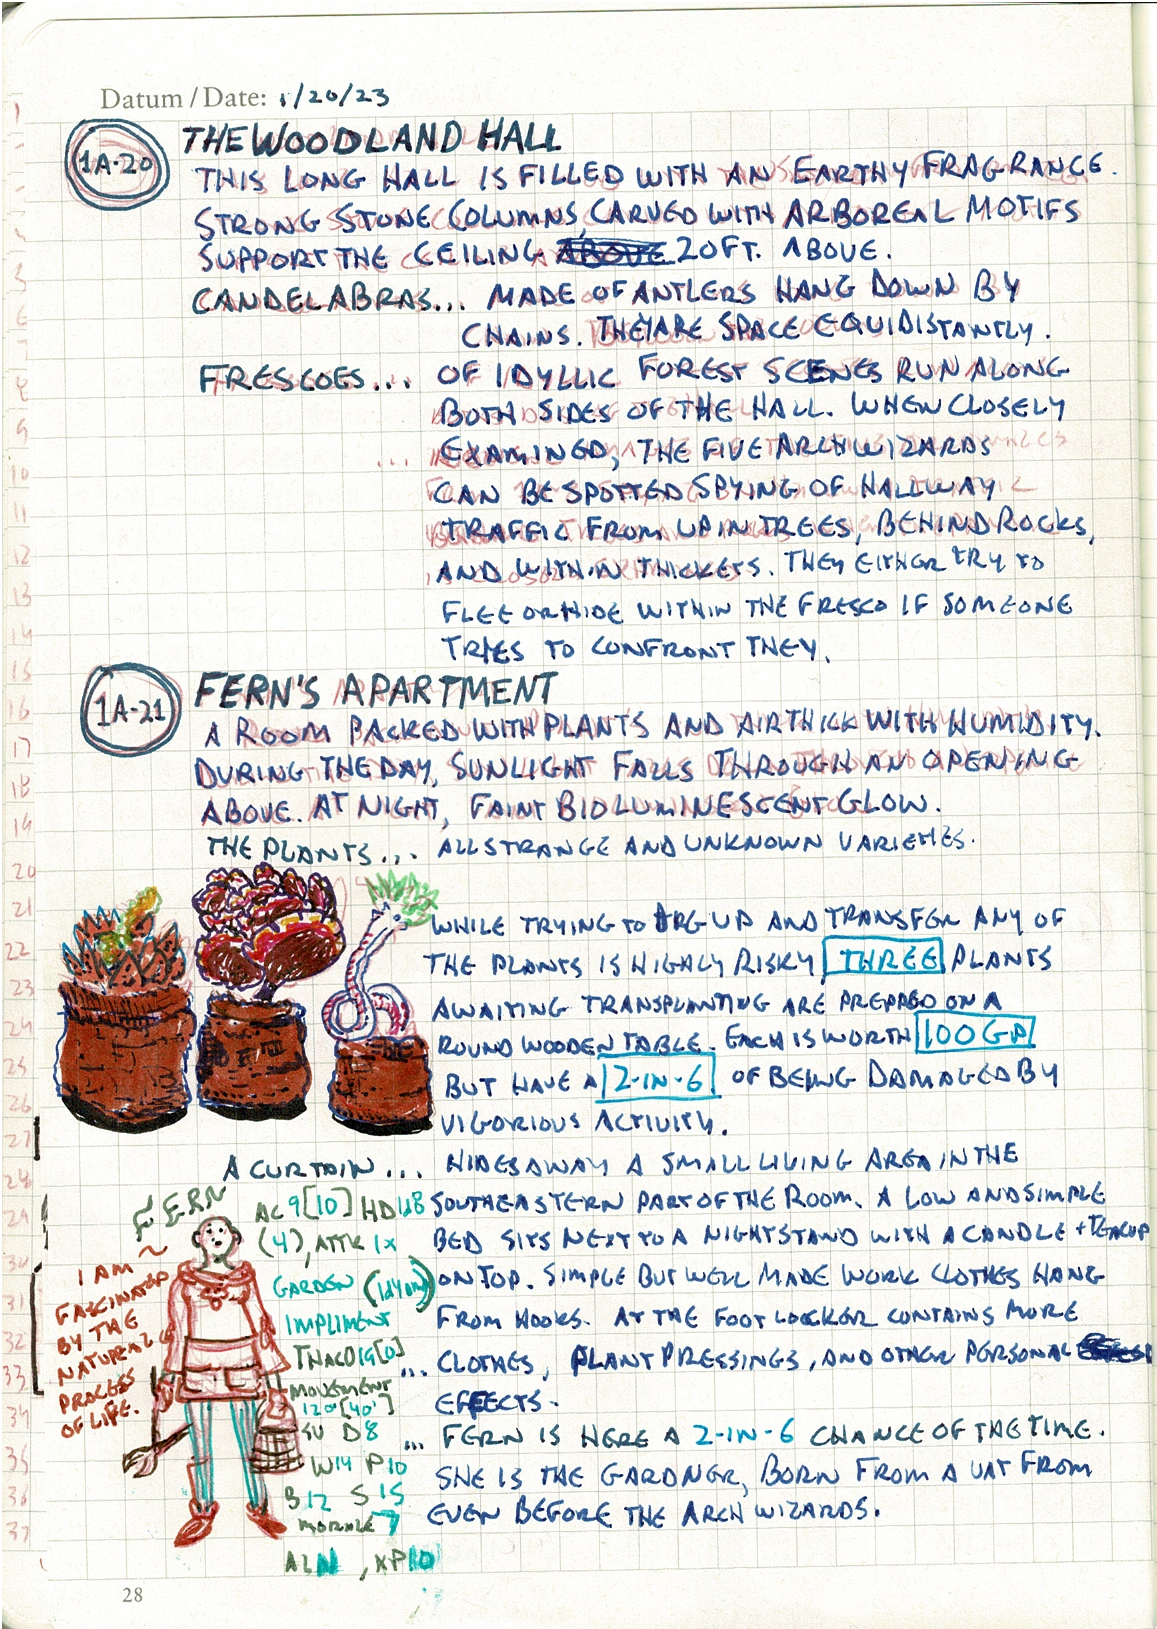 Datum / Date: 1/20/23
1A-20
THE WOODLAND HALL
THIS LONG HALL IS FILLED WITH AN EARTHY FRAGRANCE.
STRONG STONE COLUMNS, CARVED WITH ARBOREAL MOTIFS
SUPPORT THE CEILING 20FT. ABOVE.
CANDELABRAS... MADE OF ANTLERS HANG DOWN BY
CHAINS. THEY ARE SPACE EQUIDISTANTLY.
FRESCOES... OF IDYLLIC FOREST SCENES RUN ALONG
BOTH SIDES OF THE HALL. WHEN CLOSELY
EXAMINED, THE FIVE ARCH WIZARDS
CAN BE SPOTTED SPYING OF HALLWAY
TRAFFIC FROM UP IN TREES, BEHIND ROCKS,
AND WITHIN THICKETS. THEY EITHER TRY TO
FLEE OR HIDE WITHIN THE FRESCO IF SOMEONE
TRIES TO CONFRONT THEY.
1A-21
FERN'S APARTMENT
A ROOM PACKED WITH PLANTS AND AIR THICK WITH HUMIDITY.
DURING THE DAY, SUNLIGHT FALLS THROUGH AN OPENING
ABOVE. AT NIGHT, FAINT BIOLUMINESCENT GLOW.
THE PLANTS... ALL STRANGE AND UNKNOWN VARIETIES.
WHILE TRYING TO DIG UP AND TRANSFER ANY OF
THE PLANTS IS HIGHLY RISKY THREE PLANTS
AWAITING TRANSPLANTING ARE PREPPED ON A
ROUND WOODEN TABLE. EACH IS WORTH 100 GP
BUT HAVE A 2-IN-6 OF BEING DAMAGED BY
VIGORIOUS ACTIVITY.
A CURTAIN... HIDES AWAY A SMALL LIVING AREA IN THE
SOUTHEASTERN PART OF THE ROOM. A LOW AND SIMPLE
BED SITS NEXT TO A NIGHTSTAND WITH A CANDLE + TEACUP
ON TOP. SIMPLE BUT WELL MADE WORK CLOTHES HANG
FROM HOOKS. AT THE FOOT LOCKER CONTAINS MORE
... CLOTHES, PLANT PRESSINGS, AND OTHER PERSONAL
EFFECTS.
... FERN IS HERE A 2-IN-6 CHANCE OF THE TIME.
SHE IS THE GARDNER, BORN FROM A VAT FROM
EVEN BEFORE THE ARCH WIZARDS.
FERN
I AM
FASCINATED
BY THE
NATURAL
PROCESS
OF LIFE.
AC 9[10] HD 1d8
(4), ATTK 1X
GARDEN (1d4 )
IMPLIMENT
THAC0 19[0]
MOVEMENT
120'[40']
SV D8
W14 P10
B12 S15
MORALE 7
AL N, XP 10
1
2
3
4
5
6
7
8
9
10
11
12
13
14
15
16
17
18
19
20
21
22
23
24
25
26
27
28
29
30
31
32
33
34
35
36
37
28